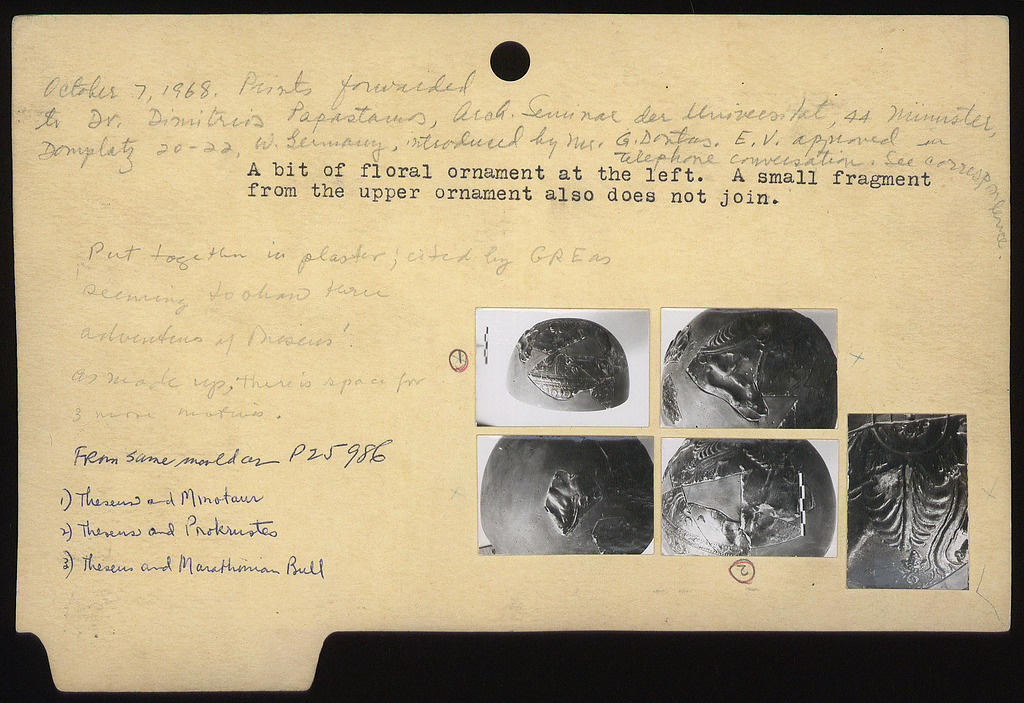 October 7, 1968. Prints forwarded
to Dr. Dimitrios Papastamos, Arch. Seminar der Universitat, 44 Munster,
Domplatz 20-22, W. Germany, introduced by Mr. G. Dontas. E.V. approved in
telephone conversation. See correspondence.
A bit of floral ornament at the left. A small fragment
from the upper ornament also does not join.
Put together in plaster; cited by GREas
'seeming to show three
adventures of Theseus'.
As made up, there is space for
3 more motives.
From same mould as P25986
1) Theseus and Minotaur
2) Theseus and Prokrustes
3) Theseus and Marathonian Bull
1
2